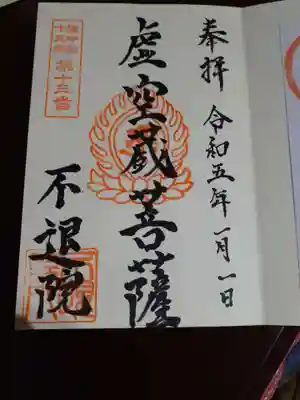 奉拝 令和五年一月一日
虚空蔵菩薩
第十三番
不退院